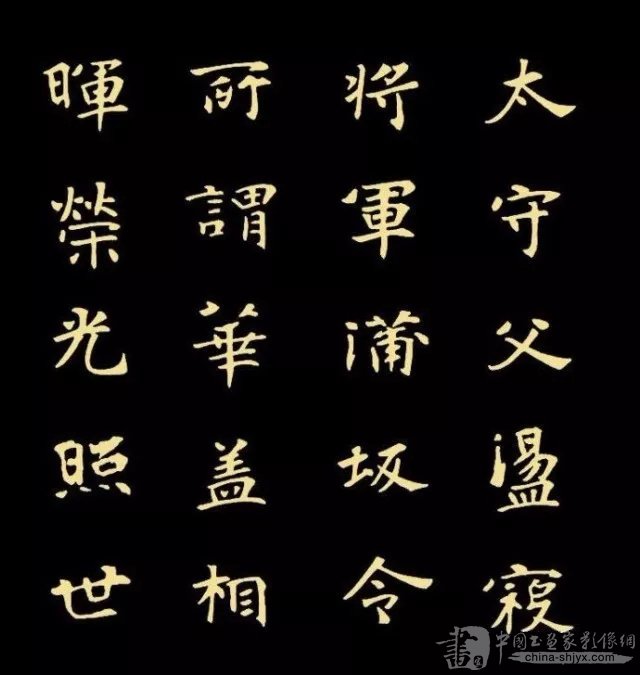 太守父盪寇
将軍蒲坂令
所謂華盖相
暉榮光照世
書 中國书画家影像網
china-shjyx.com